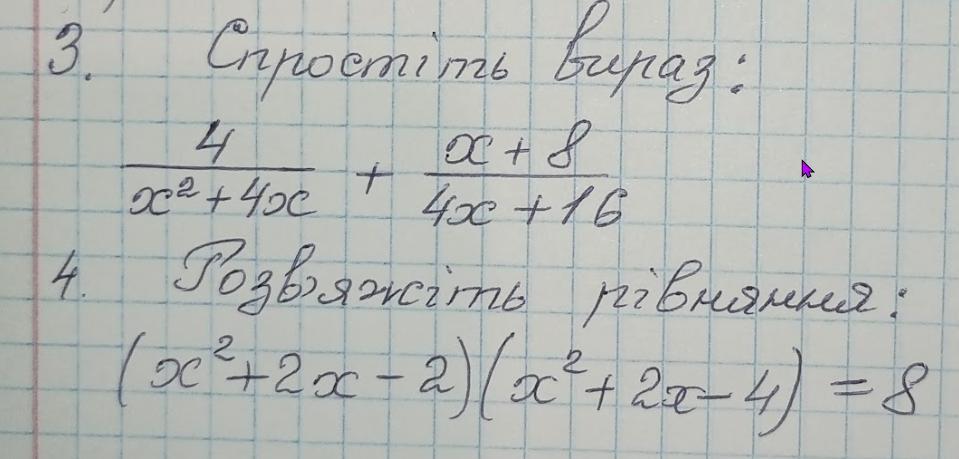 3. Спростіть вираз:
4/(x²+4x) + (x+8)/(4x+16)
4. Розв'яжіть рівняння:
(x²+2x-2)(x²+2x-4)=8